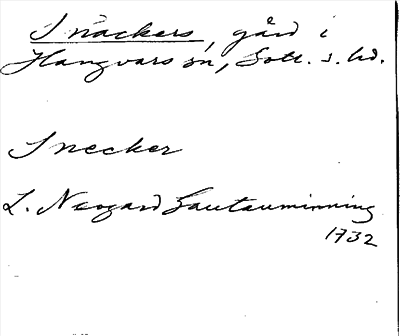 Snäckers, gård i
Hangvars sn, Gotl. s. hd.
Snecker
L. Neogard Gautauminning
1732